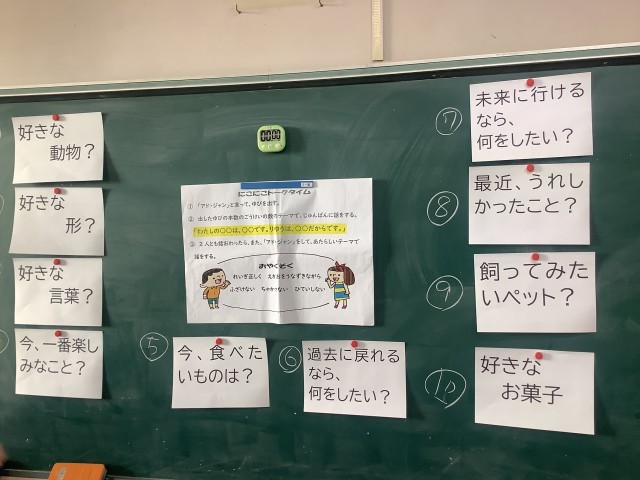 好きな
動物？
好きな
形？
好きな
言葉？
今、一番楽し
みなこと？
にこにこトークタイム
① 「アド・ジャン」と言って、ゆびを出す。
② 出したゆびの本数のごうけいの数のテーマで、じゅんばんに話をする。
「わたしの〇〇は、〇〇です。りゆうは、〇〇だからです。」
③ 2人とも話おわったら、また、「アド・ジャン」をして、あたらしいテーマで
話をする。
おやくそく
れいぎ正しく えがおをうなずきながら
ふざけない ちゃかさない ひていしない
⑤
今、食べた
いものは？
⑥
過去に戻れる
なら、
何をしたい？
⑦
未来に行ける
なら、
何をしたい？
⑧
最近、うれし
かったこと？
⑨
飼ってみた
いペット？
⑩
好きな
お菓子